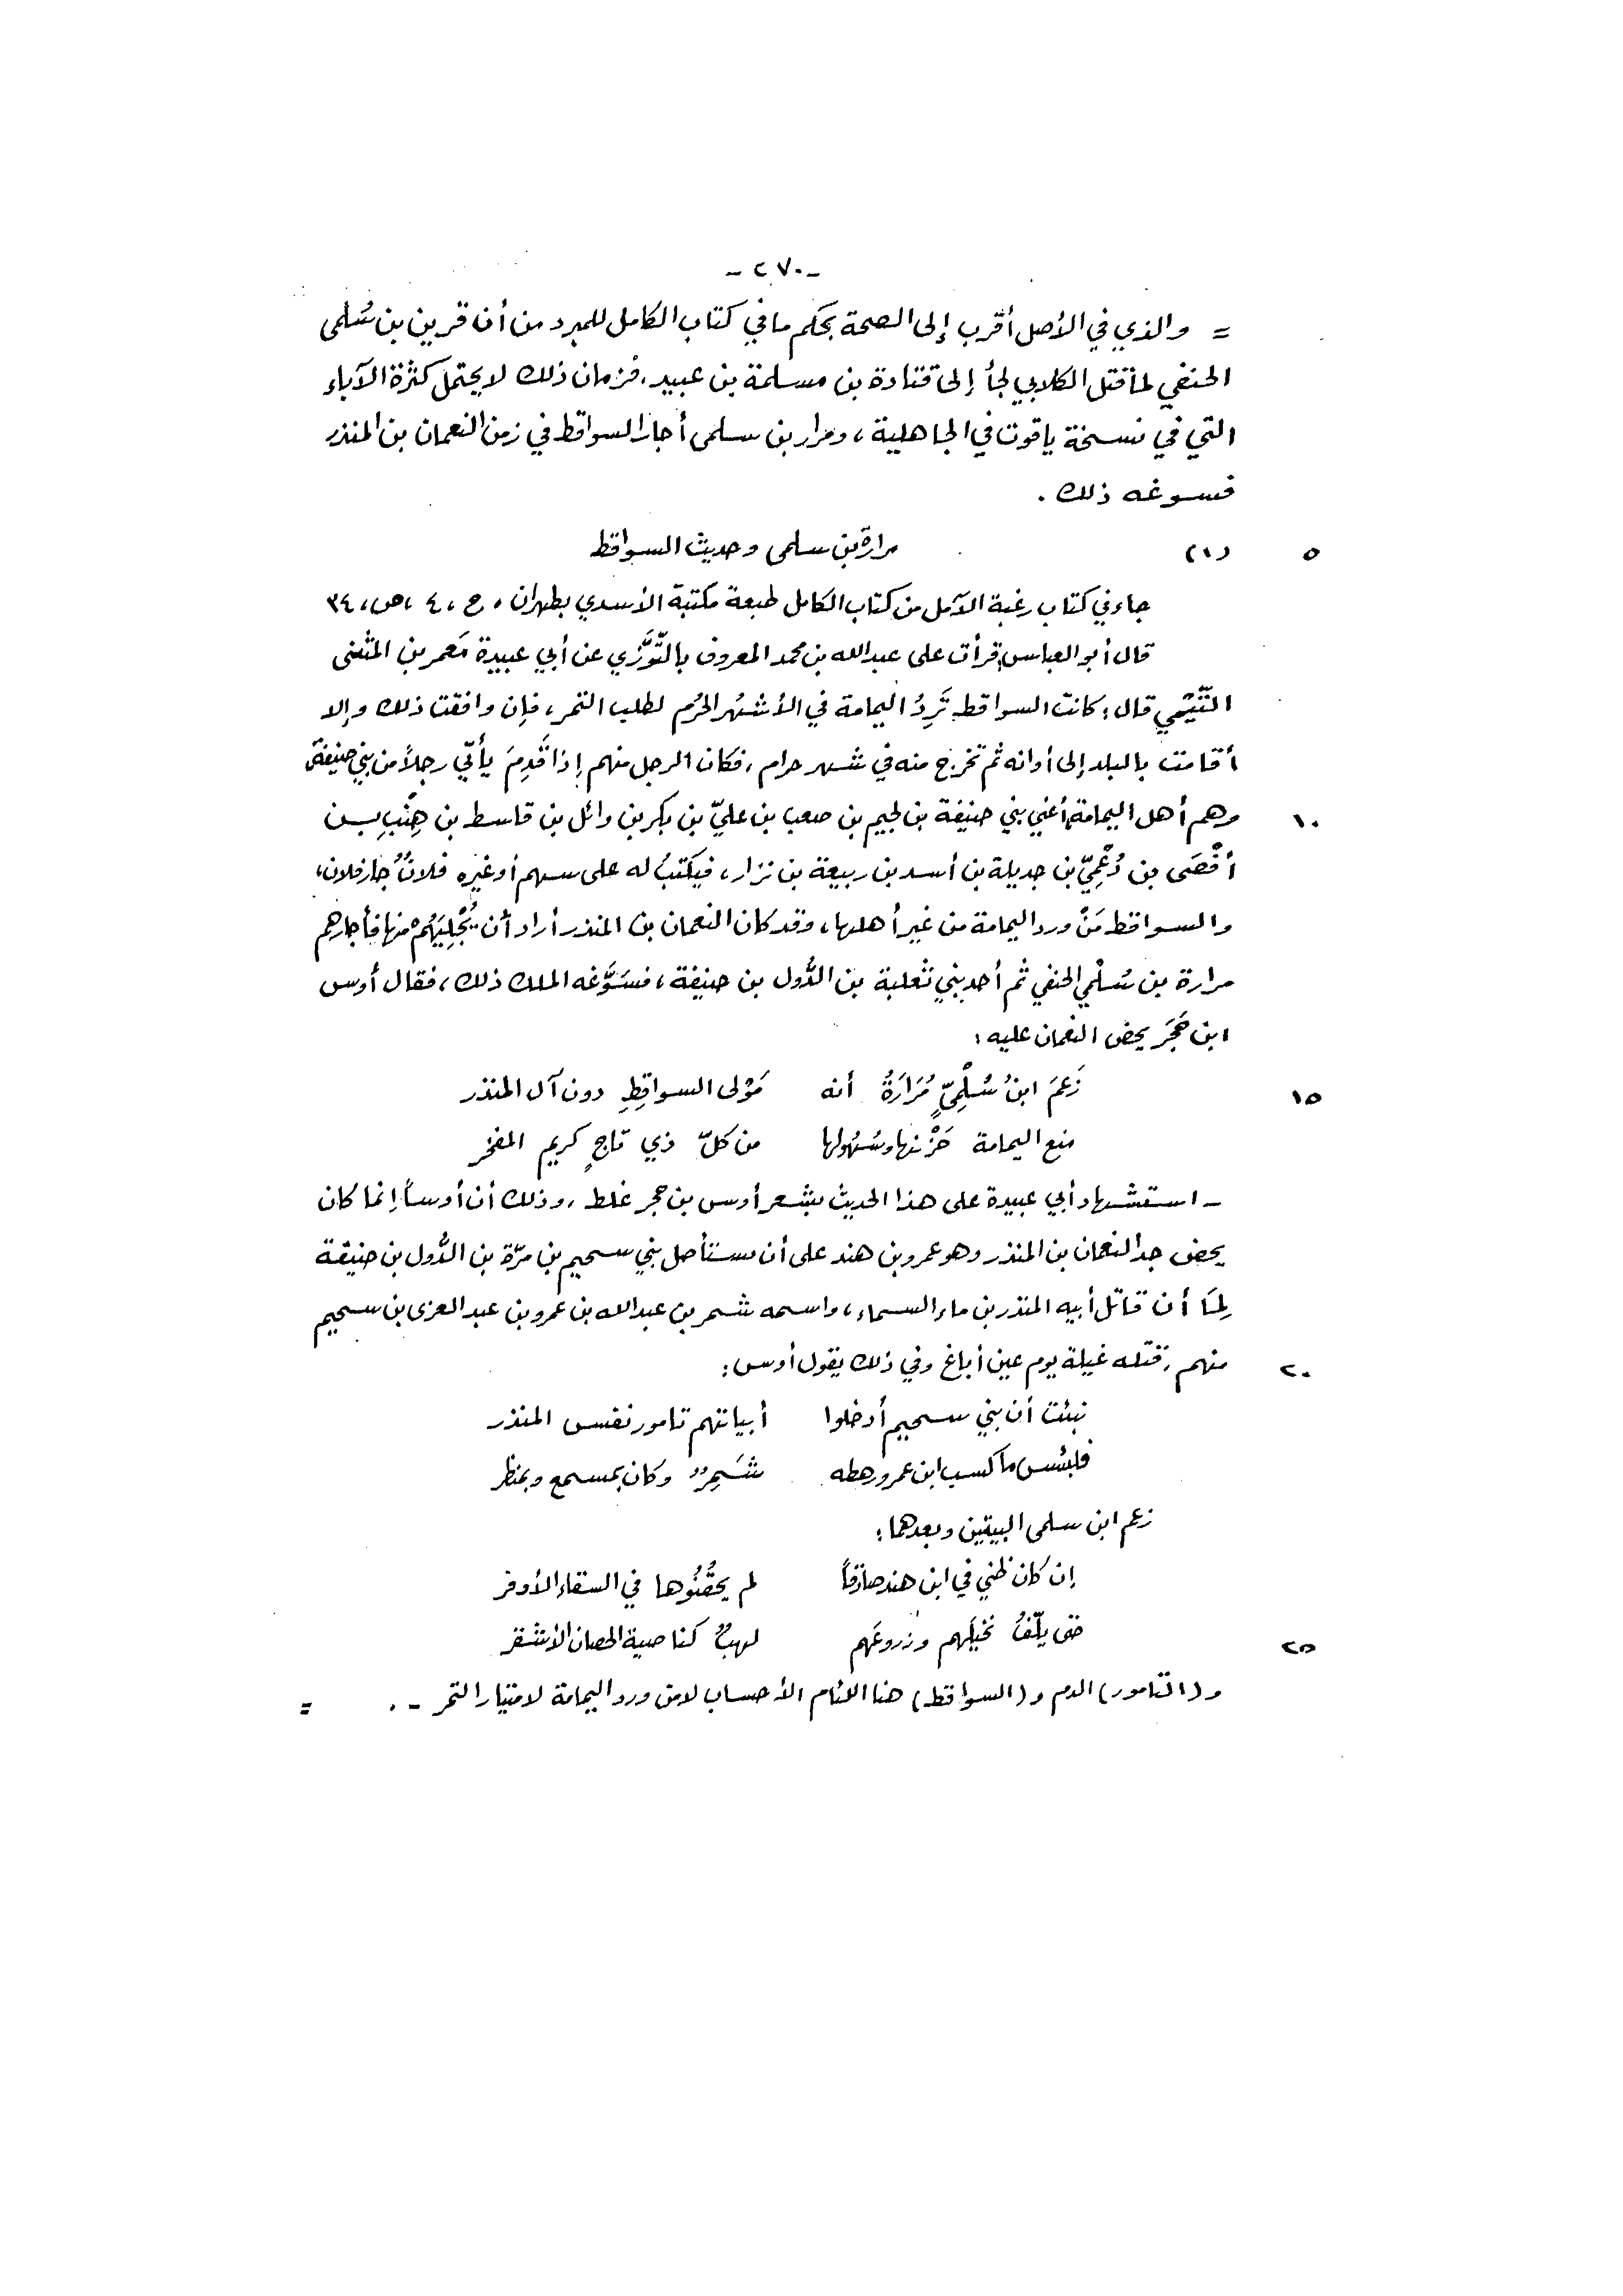 -٢٧٠-
= والذي في الأصل أقرب إلى الصحة بحكم ما في كتاب الكامل للمبرد من أن قرين بن سُلمى
الحنفي لما قتل الكلابي لجأ إلى قتادة بن مسلمة بن عبيد، فزمان ذلك لا يحتمل كثرة الآباء
التي في نسخة ياقوت في الجاهلية، ومرار بن سلمى أجار السواقط في زمن النعمان بن المنذر
فسوغه ذلك.
٥ (١) مرارة بن سلمى وحديث السواقط
جاء في كتاب رغبة الآمل من كتاب الكامل طبعة مكتبة الأسدي بطهران، ج، ٤، ص، ٣٤
قال أبو العباس: قرأت على عبدالله بن محمد المعروف بالتَّوَّزي عن أبي عبيدة مَعمر بن المثنى
التَّيْمي قال: كانت السواقط تَرِدُ اليمامة في الأشهُر الحُرم لطلب التمر، فإن وافقت ذلك وإلا
أقامت بالبلد إلى أوانه ثم تخرج منه في شهر حرام، فكان الرجل منهم إذا قَدِمَ يأتي رجلاً من بني حنيفة،
١٠ وهم أهل اليمامة، أعني بني حنيفة بن لجيم بن صعب بن عليّ بن بكر بن وائل بن قاسط بن هِنْبِ بـن
أَفْصَى بن دُعْمِيّ بن جديلة بن أسد بن ربيعة بن نزار، فيكتبُ له على سهم أو غيره فلانٌ جار فلان،
والسواقط مَنْ ورد اليمامة من غير أهلها، وقد كان النعمان بن المنذر أراد أن يُجْلِيَهُمْ منها فأجارهم
مرارة بن سُلْمي الحنفي ثم أحد بني ثعلبة بن الدُّول بن حنيفة، فسَوَّغه الملك ذلك، فقال أوس
ابن حَجَر يحض النعمان عليه:
١٥ زَعمَ ابنُ سُلْمِيٍّ مُرَارَةُ أنه مَوْلى السواقِطِ دون آل المنذر
منع اليمامة حَزْنها وسُهُولها من كلّ ذي تاجٍ كريم المفخر
- استشهاد أبي عبيدة على هذا الحديث بشعر أوس بن حجر غلط، وذلك أن أوساً إنما كان
يحض جد النعمان بن المنذر وهو عمرو بن هند على أن يستأصل بني سحيم بن مرّة بن الدُّول بن حنيفة
لِمَا أن قاتل أبيه المنذر بن ماء السماء، واسمه شمر بن عبدالله بن عمرو بن عبد العزى بن سحيم
٢٠ منهم، قتله غيلة يوم عين أباغ وفي ذلك يقول أوس:
نبئت أن بني سحيم أدخلوا أبياتهم تامور نفس المنذر
فلبئس ما كسب ابن عمرو رهطه شَمِرٌ وكان بمسمع وبمنظر
زعم ابن سلمى البيتين وبعدهما:
إن كان ظني في ابن هند صادقاً لم يحقُنُوها في السقاء الأوفر
٢٥ حتى يلّفُ نخيلَهم وزروعَهم لهبٌ كناصية الحصان الأشقر
و(التامور) الدم و(السواقط) هنا اللئام الأحساب لا من ورد اليمامة لامتيار التمر -. =